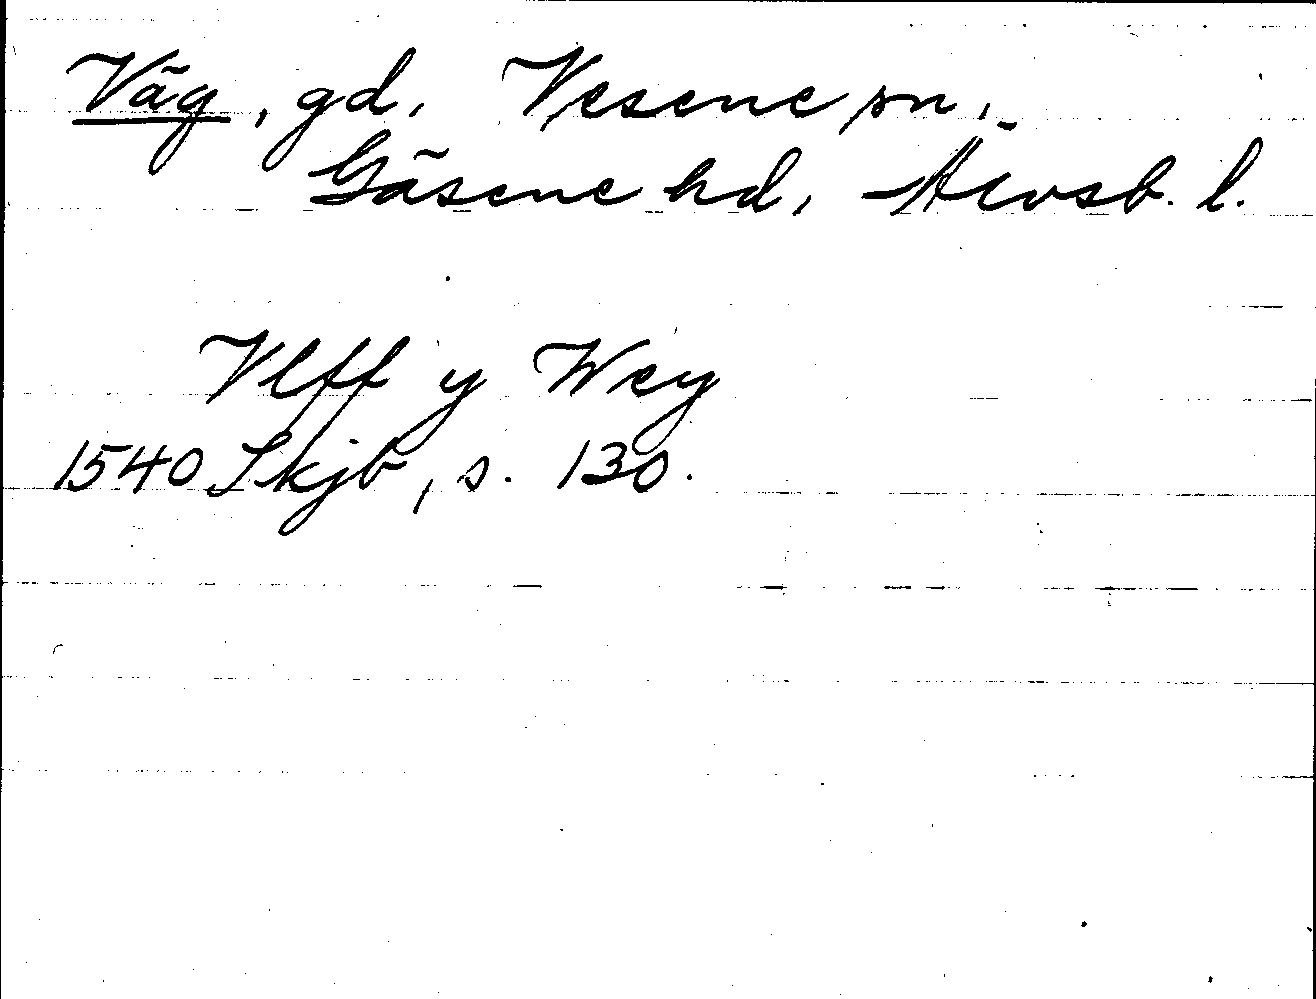 Väg, gd, Vesene sn,
Gäsene hd, Älvsb. l.
Vlff y Wey
1540 Skjb, s. 130.